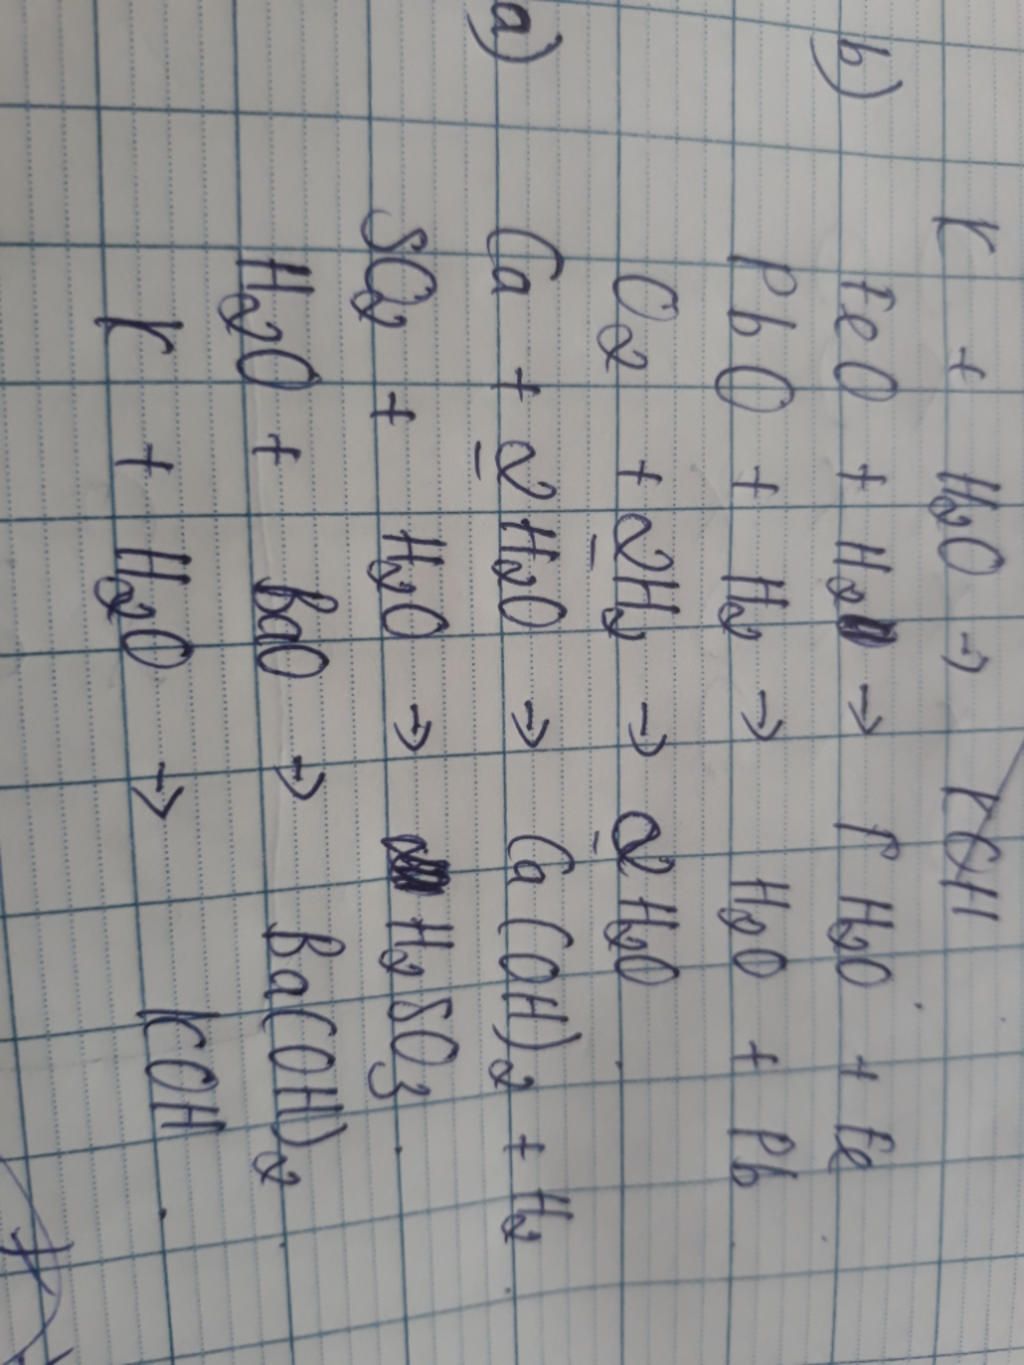 K + H₂O → KOH
b) FeO + H₂ → H₂O + Fe
PbO + H₂ → H₂O + Pb
O₂ + 2H₂ → 2H₂O
a) Ca + 2H₂O → Ca(OH)₂ + H₂
SO₂ + H₂O → H₂SO₃
H₂O + BaO → Ba(OH)₂
K + H₂O → KOH